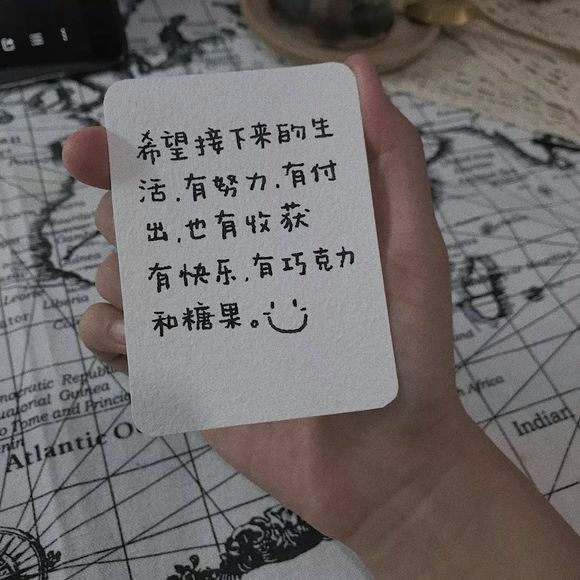 希望接下来的生
活,有努力,有付
出,也有收获
有快乐,有巧克力
和糖果。
Liberia
Democratic Republic
Equatorial Guinea
Tome and Principe
Atlantic
Africa
Indian